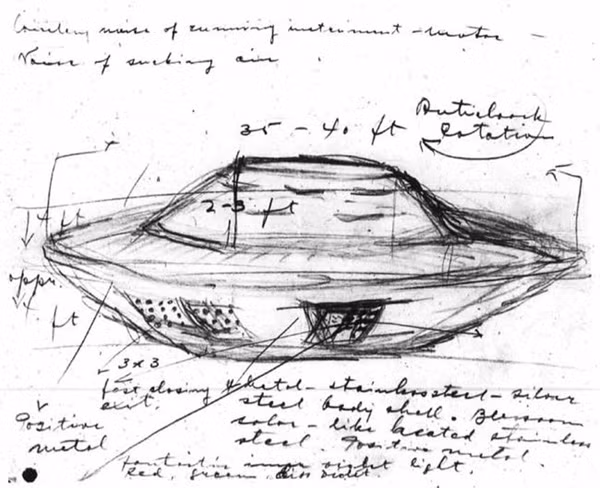 noise of running instrument - motor -
Noise of sucking air
Anticlock
35 - 40 ft rotation
2-3 ft
4 ft
appr.
4. ft
3x3
fast closing metal - stainless steel - silver
exit. steel body shell.
color - like heated stainless
Positive steel. Positive metal.
metal
fantastic light.
red, green, violet.